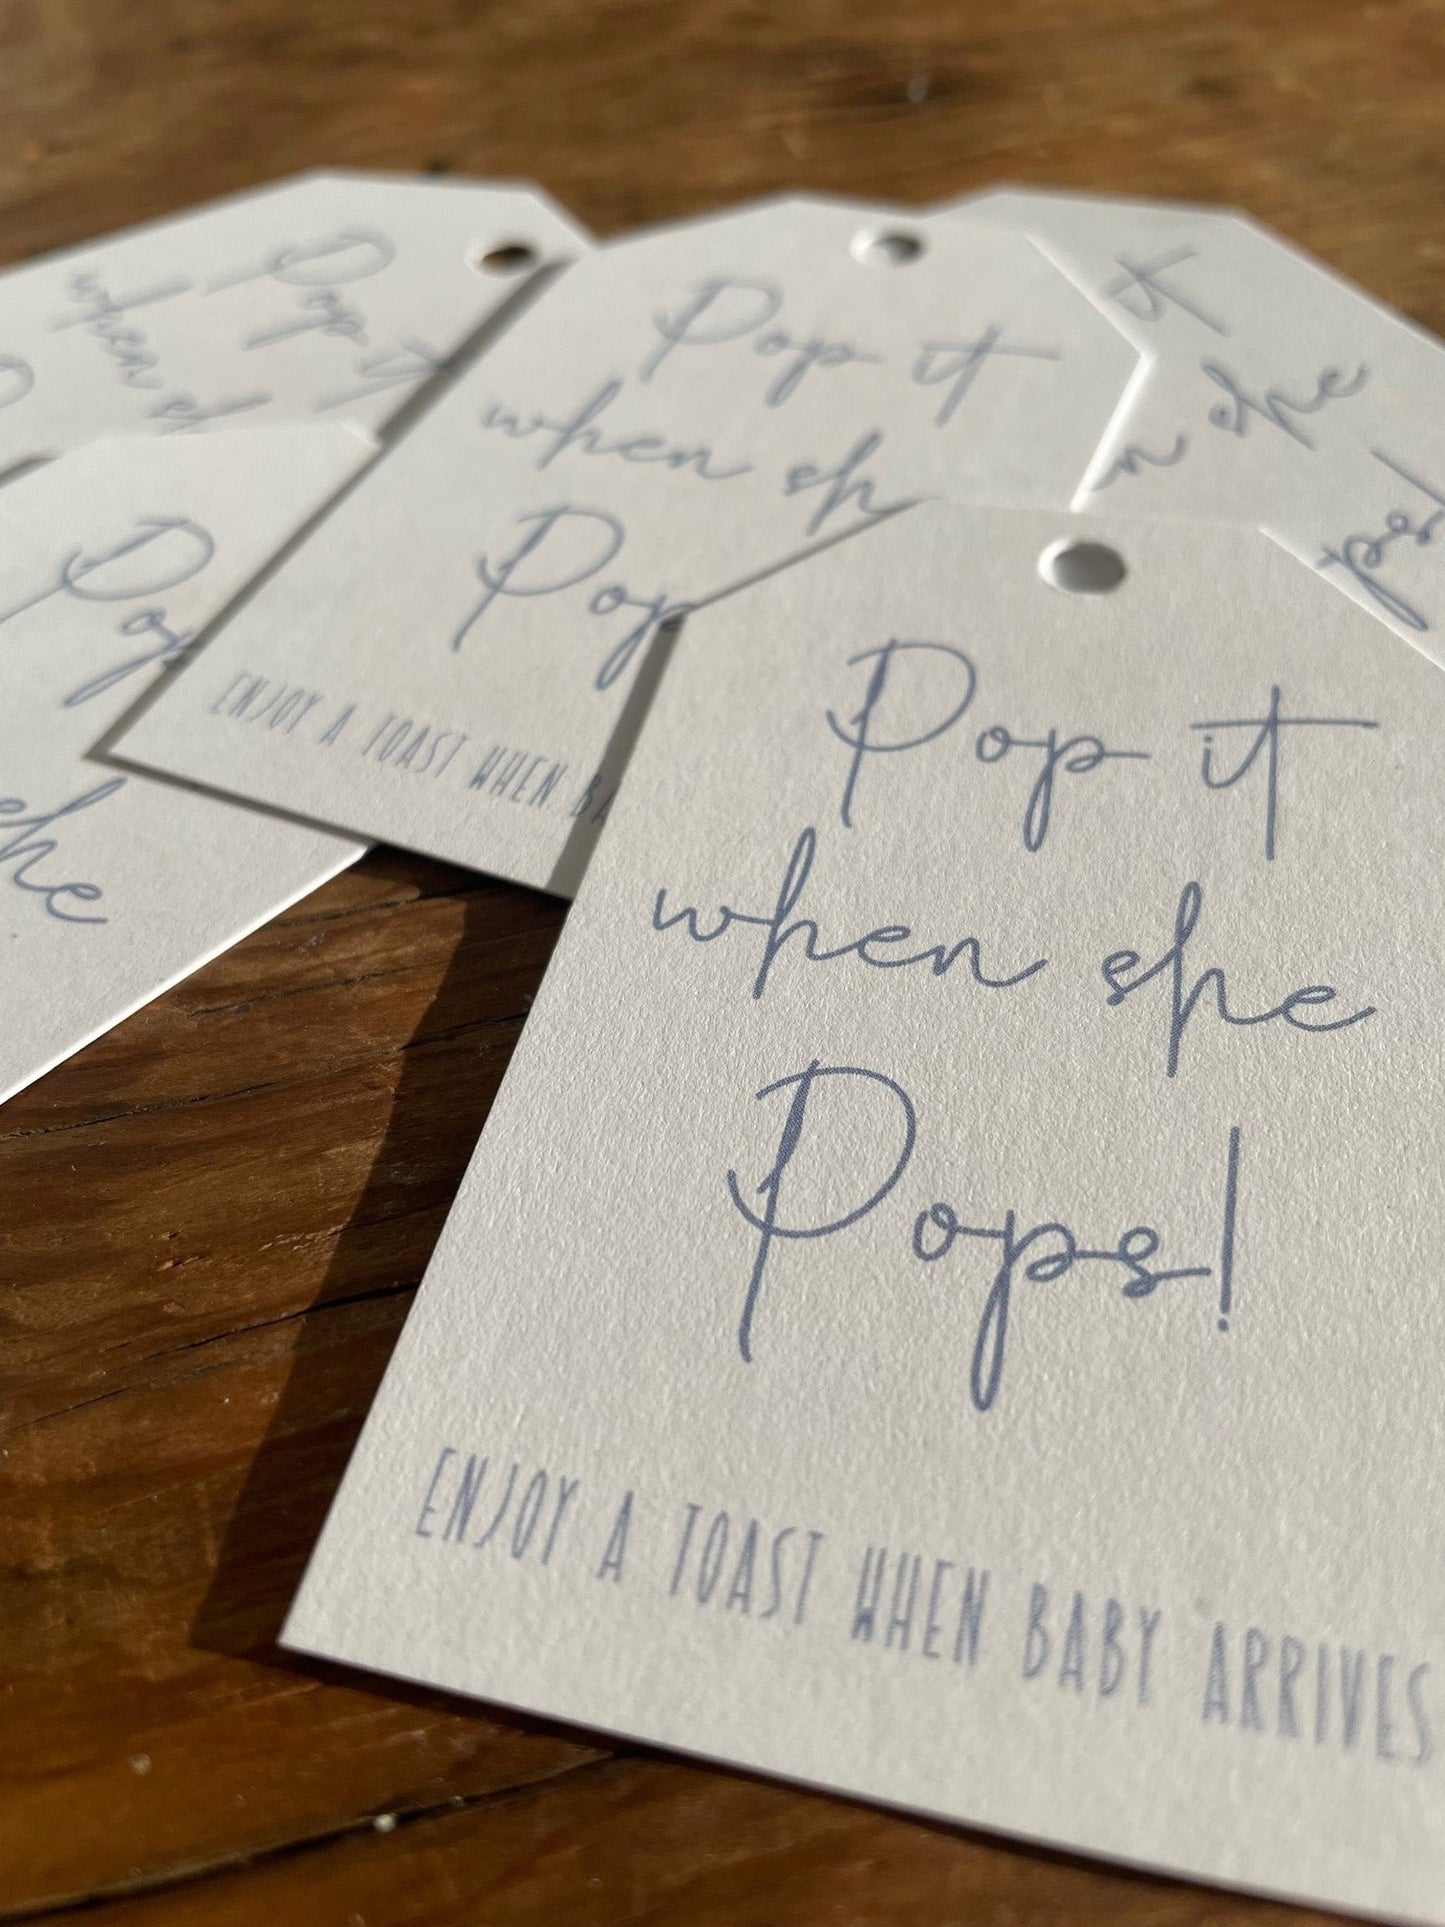 Pop it
when she
Pop it
when sh
Pop
ENJOY A TOAST WHEN
it
she
she
Pop it
when she
Pops!
ENJOY A TOAST WHEN BABY ARRIVES